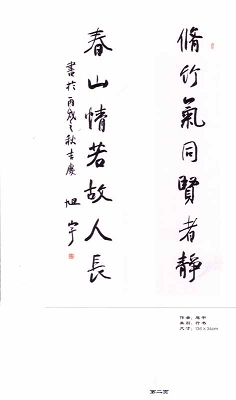 脩竹氣同賢者靜
春山情若故人長
書於丙戌之秋吉慶
旭宇
作者：旭宇
类别：行书
尺寸：134×34cm
第二页